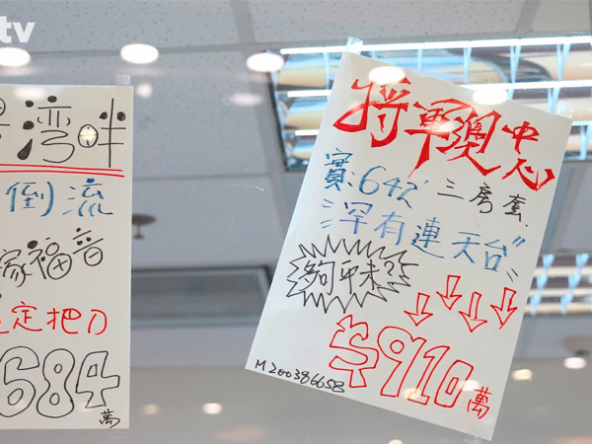 tv
灣畔
倒流
家福音
定把刀
684萬
將軍澳中心
實:642' 三房套.
"罕有連天台"
夠平未?
$910萬
M200386658